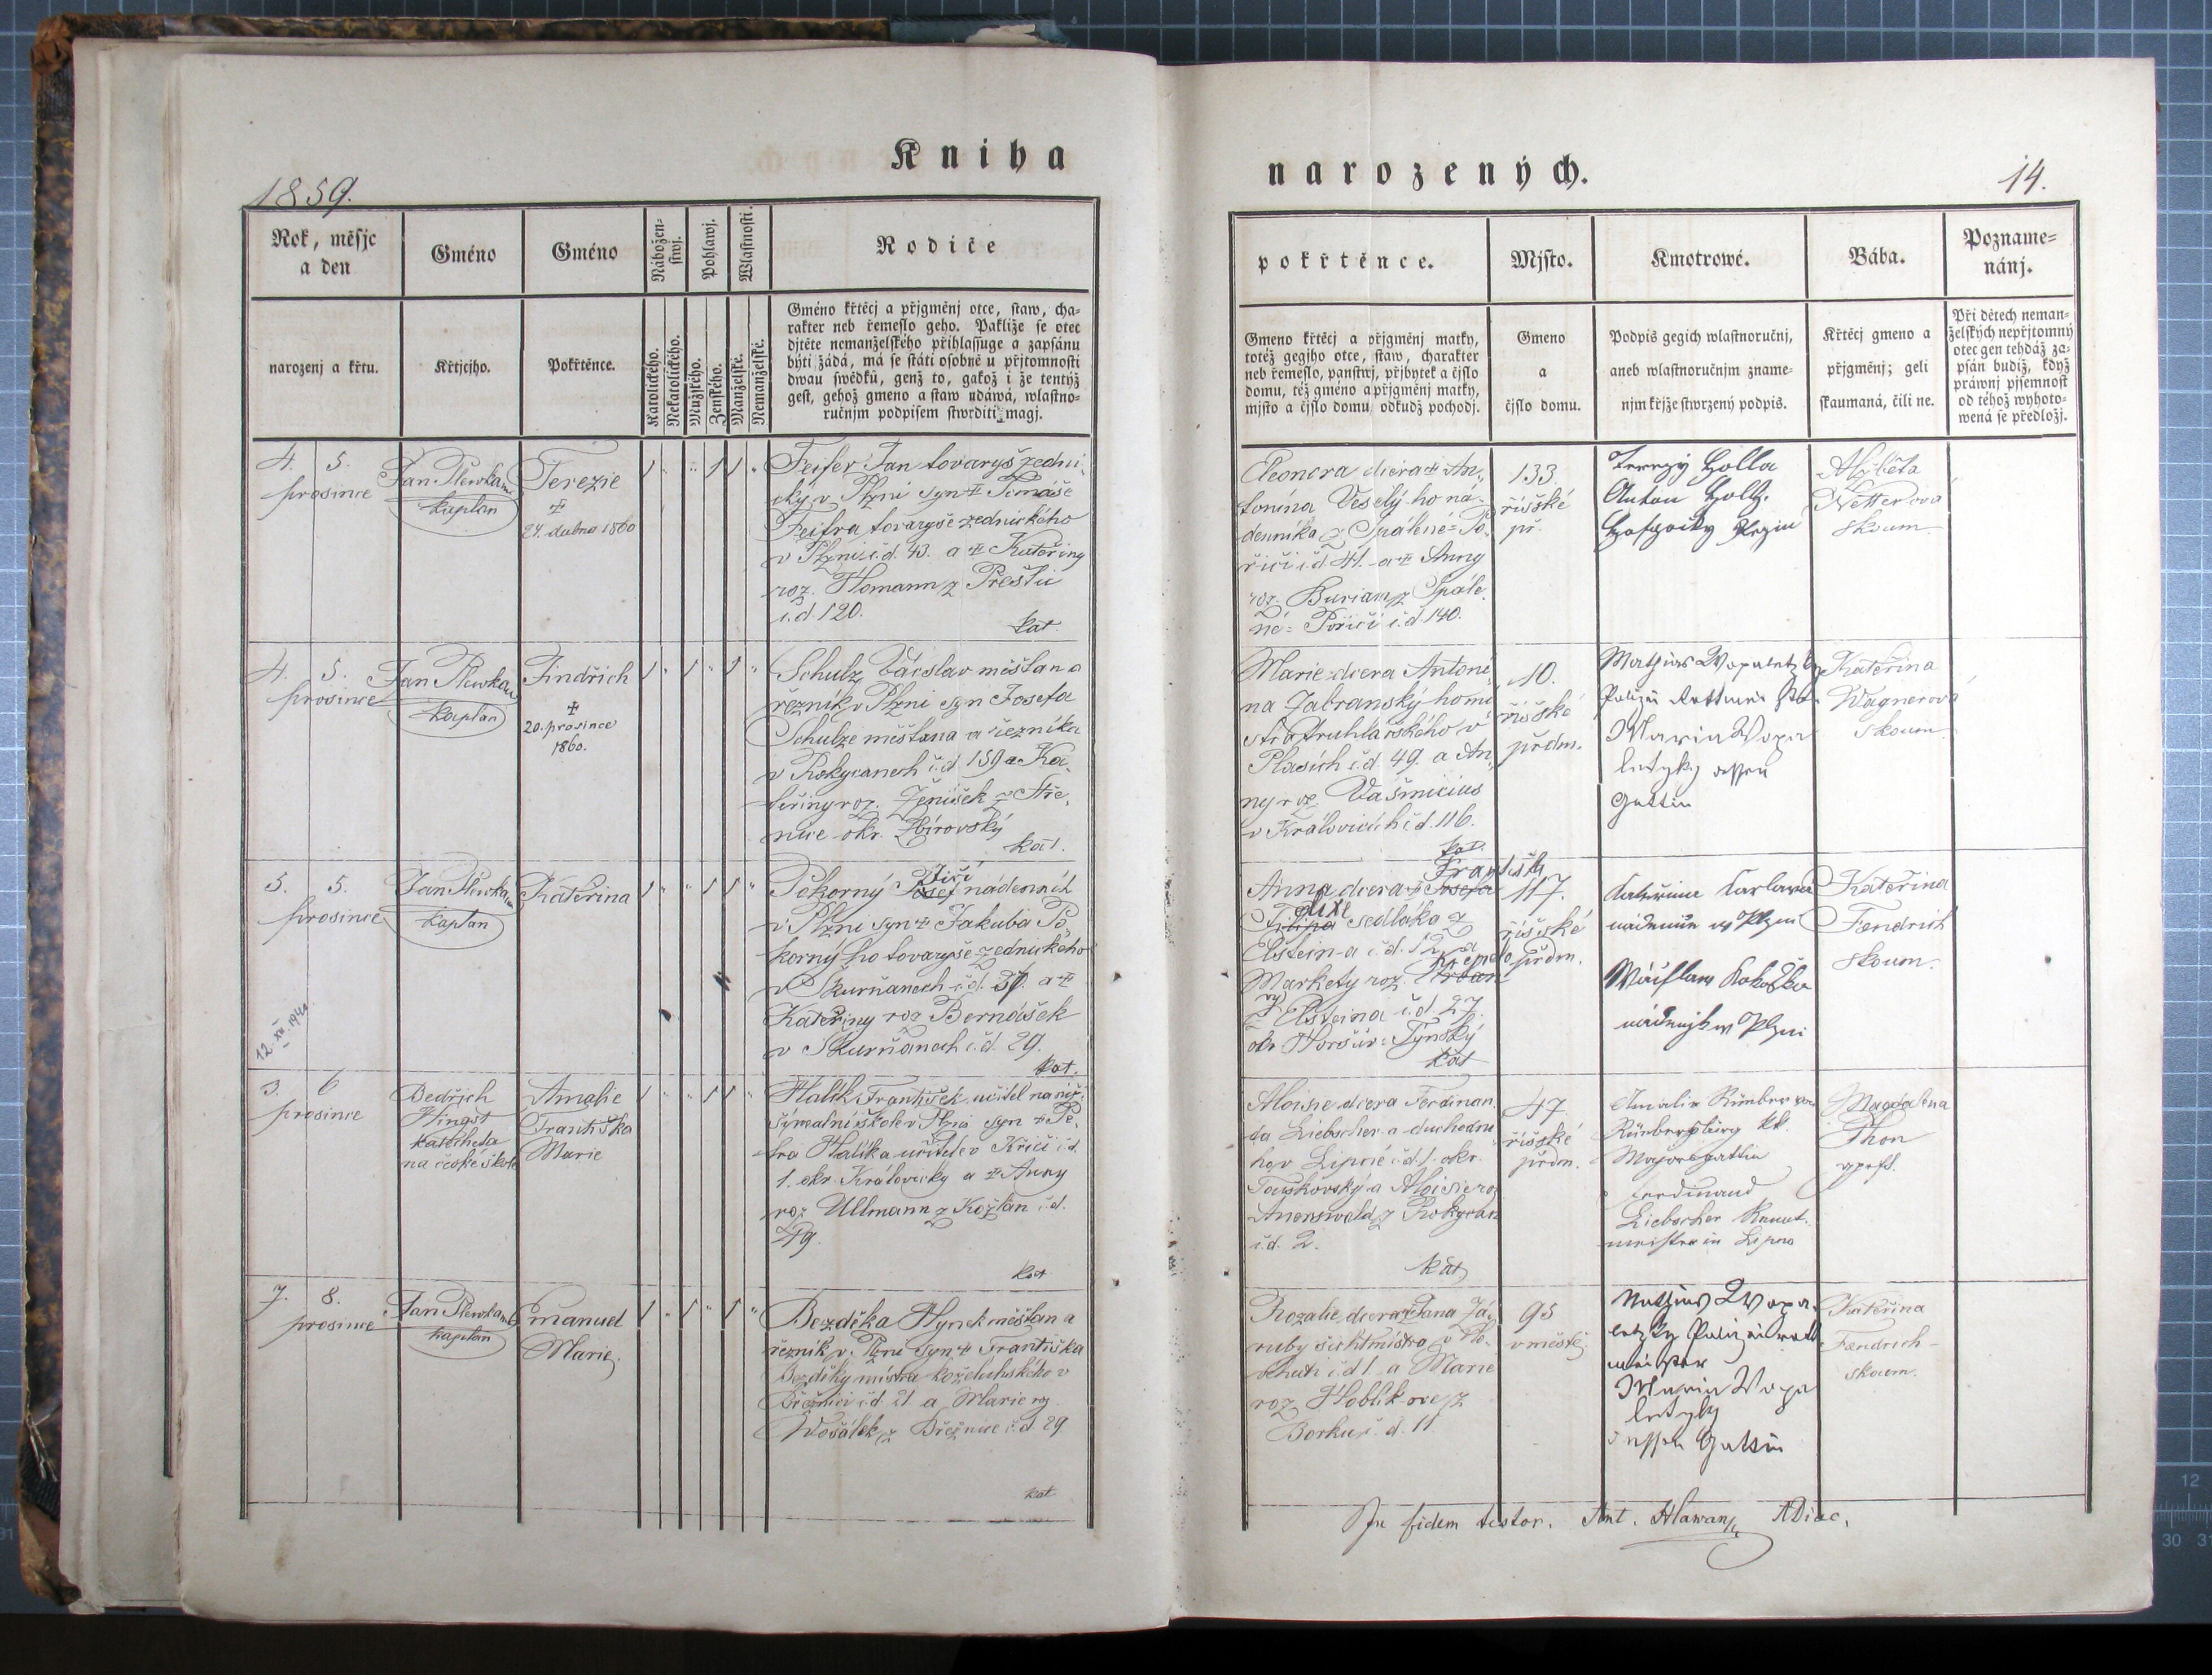 Kniha
narozených.
1859.
14.
Rok, měsjc
a den
Gméno
Gméno
Nábožen-
stwj.
Pohlawj.
Wlastnosti.
Rodiče
pokřtěnce.
Mjsto.
Kmotrowé.
Bába.
Pozname-
nánj.
narozenj a křtu.
Křtjcjho.
Pokřtěnce.
Katolického.
Nekatolického.
Mužského.
Ženského.
Manželské.
Nemanželské.
Gméno křtěcj a přjgměnj otce, staw, cha-
rakter neb řemeslo geho. Pakliže se otec
djtěte nemanželského přihlassuge a zapsánu
býti žádá, má se státi osobně u přjtomnosti
dwau swědků, genž to, gakož i že tentýž
gest, gehož gmeno a staw udáwá, wlastno-
ručnjm podpisem stwrditi magj.
Gmeno křtěcj a přjgměnj matky,
totéž gegjho otce, staw, charakter
neb řemeslo, panstwj, přjbytek a čjslo
domu, též gméno a přjgměnj matky,
mjsto a čjslo domu, odkudž pochodj.
Gmeno
a
čjslo domu.
Podpis gegich wlastnoručnj,
aneb wlastnoručnjm zname-
njm křjže stwrzený podpis.
Křtěcj gmeno a
přjgměnj; geli
skaumaná, čili ne.
Při dětech neman-
želských nepřjtomný
otec gen tehdáž za-
psán budiž, když
práwnj pjsemnost
od téhož wyhoto-
wená se předložj.
4. 5.
prosince
Jan
kaplan
Terezie
24. dubna 1860
Feifer Jan tovaryš zedni-
cký v Plzni syn Tomáše
Feifra tovaryše zednického
v Plzni č.d. 43. a Kateřiny
roz. Homann z Přeštic
č.d. 120.
kat.
Eleonora dcera An-
tonína Veselýho ná-
denníka z Spálené-Po-
řiči č.d. 41. a Anny
roz. Burian z Spále-
né-Pořiči č.d. 140.
133.
říšské
př.
Alžběta
Netterová
skoum.
4. 5.
prosince
Jan
kaplan
Jindřich
20. prosince
1860.
Schulz Václav měšťan a
řezník v Plzni syn Josefa
Schulze měšťana a řezníka
v Rokycanech č.d. 159 a Ka-
teřiny roz. Jeníšek z Stře-
nice okr. Zbirovský
kat.
Marie dcera Antoni-
na Zabranskýho mi-
stra truhlářského v
Plasích č.d. 49. a An-
ny roz.
v Královicích č.d. 116.
kat.
10.
říšské
předm.
Maria Wopa
letzky
Gattin
Kateřina
Wagnerová
skoum.
5. 5.
prosince
12. XII. 1941
Jan
kaplan
Kateřina
Jiří
Pokorný Josef nádenník
v Plzni syn Jakuba Po-
kornýho tovaryše zednického
v Skurňanech č.d. 37. a
Kateřiny roz Bernášek
v Skurňanech č.d. 29.
kat.
Františka
Anna dcera Josefa
Filipa sedláka z
Elstein-a č.d. 12 a
Markety roz. Urban
z Elsteina č.d. 27.
okr Horšův-Týnský
kat
117.
říšské
předm.
Kateřina
nádennice w Plzni
nádenjk w Plzni
Kateřina
Fendrich
skoum.
3. 6
prosince
Bedřich
Hingst
katecheta
na české škole
Amalie
Františka
Marie
Halík František, učitel na niž-
ší reální škole v Plzni syn Pe-
tra Halíka učitele v Křiči č.d.
1. okr. Královický a Anny
roz Ullmann z Kožlan č.d.
49.
kat
Aloisie dcera Ferdinan-
da Liebscher-a duchodní-
ho v Lipně č.d. 1. okr.
Touškovský a Aloisie roz
Auerswald z Rokycan
č.d. 2.
kat
47.
říšské
předm.
Majorsgattin
Ferdinand
Liebscher Rent-
meister in Lipno
Magdalena
Thon
7. 8.
prosince
Jan
kaplan
Emanuel
Marie.
Bezděka Hynek měšťan a
řezník v Plzni syn Františka
Bezděky mistra koželuhského v
Březnici č.d. 21. a Marie roz
Wošálek z Březnice č.d. 29
kat
Rozalie, dcera Jana Zá-
ruby šichtmistra v Ho-
lohuti č.d. 1. a Marie
roz Hoblík-ové z
Borku č.d. 11
95
v městě
Maria Wopa
letzky
dessen Gattin
Kateřina
Fendrich-
skoum.
In fidem testor. Ant. Hlawan